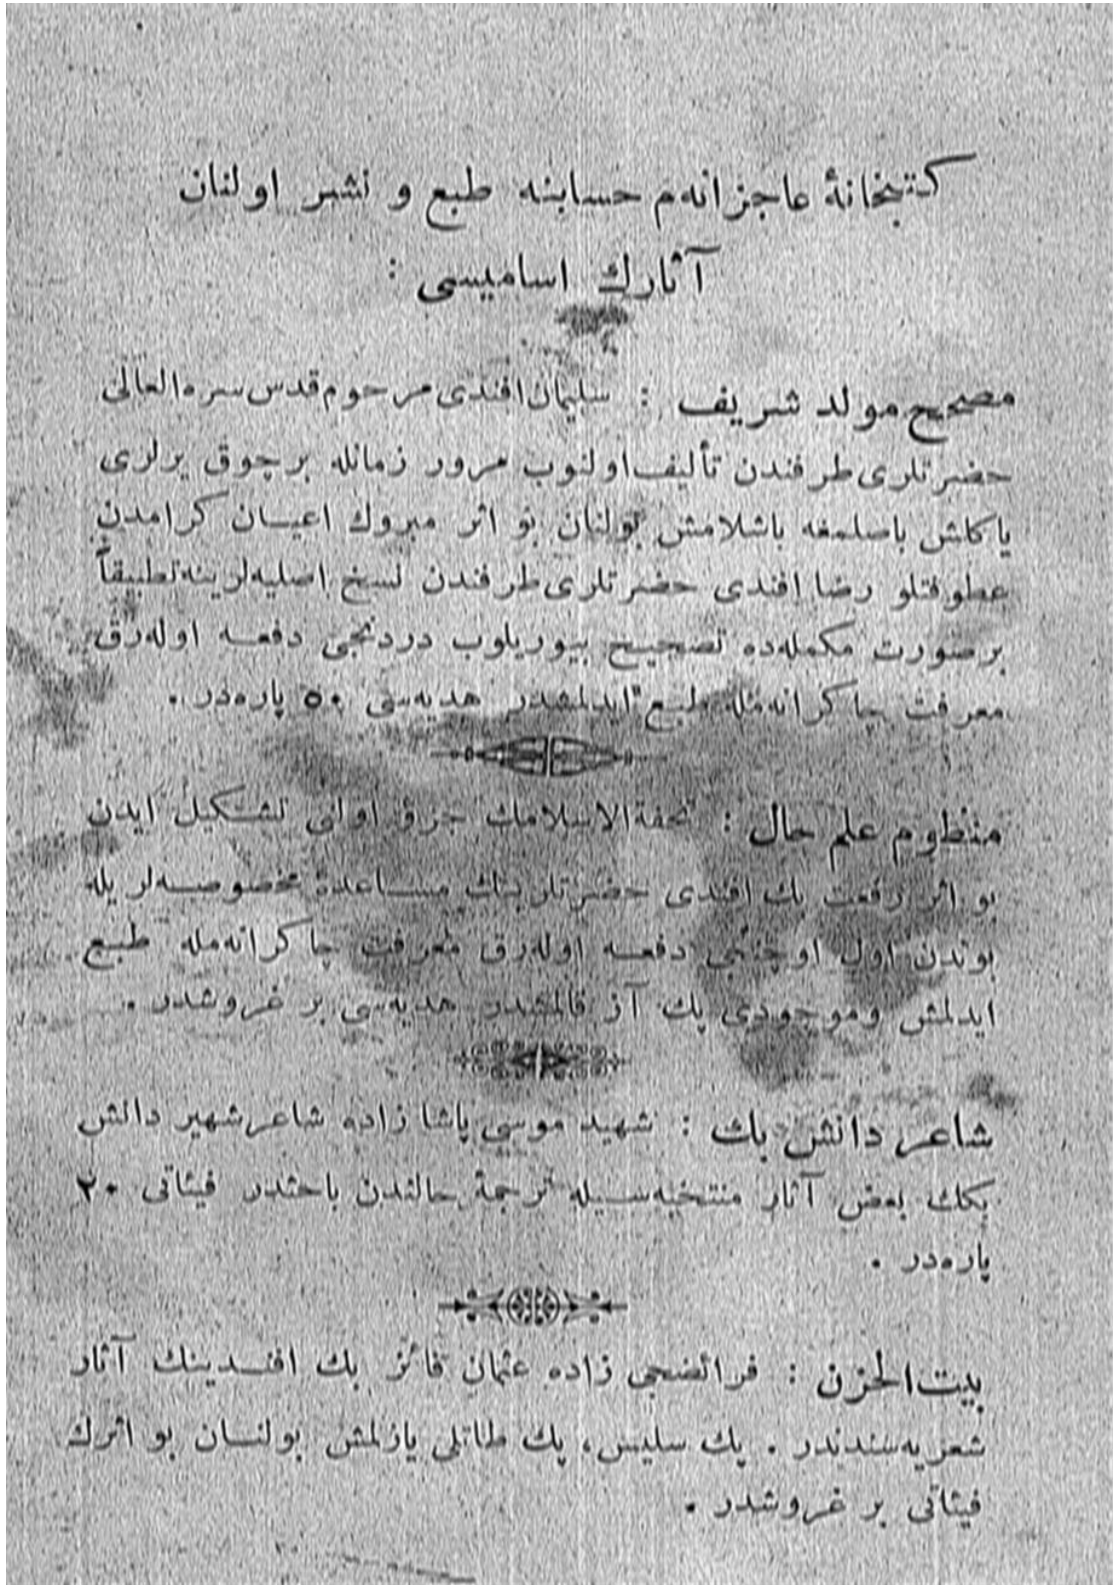 كتبخانۀ عاجزانه‌م حسابنه طبع و نشر اولنان
آثارك اساميسى :
مصحح مولد شريف : سليمان افندى مرحوم قدس سره العالى
حضرتلرى طرفندن تأليف اولنوب مرور زمانله برچوق يرلرى
ياكلش باصلمغه باشلامش بولنان بو اثر مبروك اعيان كرامدن
عطوفتلو رضا افندى حضرتلرى طرفندن نسخ اصليه‌لرينه تطبيقاً
برصورت مكمله‌ده تصحيح بيوريلوب دردنجى دفعه اوله‌رق
معرفت چاكرانه‌مله طبع ايدلمشدر هديه‌سى ٥٠ پاره‌در .
منظوم علم حال : تحفة الاسلامك جزؤ اولنى تشكيل ايدن
بو اثر رفعت بك افندى حضرتلرينك مساعدۀ مخصوصه‌لريله
بوندن اول اوچنجى دفعه اوله‌رق معرفت چاكرانه‌مله طبع
ايدلمش وموجودى پك آز قالمشدر هديه‌سى بر غروشدر .
شاعر دانش بك : شهيد موسى پاشا زاده شاعر شهير دانش
بكك بعض آثار منتخبه‌سيله ترجمۀ حالندن باحثدر فيئاتى ٢٠
پاره‌در .
بيت الحزن : فرائضجى زاده عثمان فائز بك افندينك آثار
شعريه‌سندندر . پك سليس، پك طاتلى يازلمش بولنان بو اثرك
فيئاتى بر غروشدر .